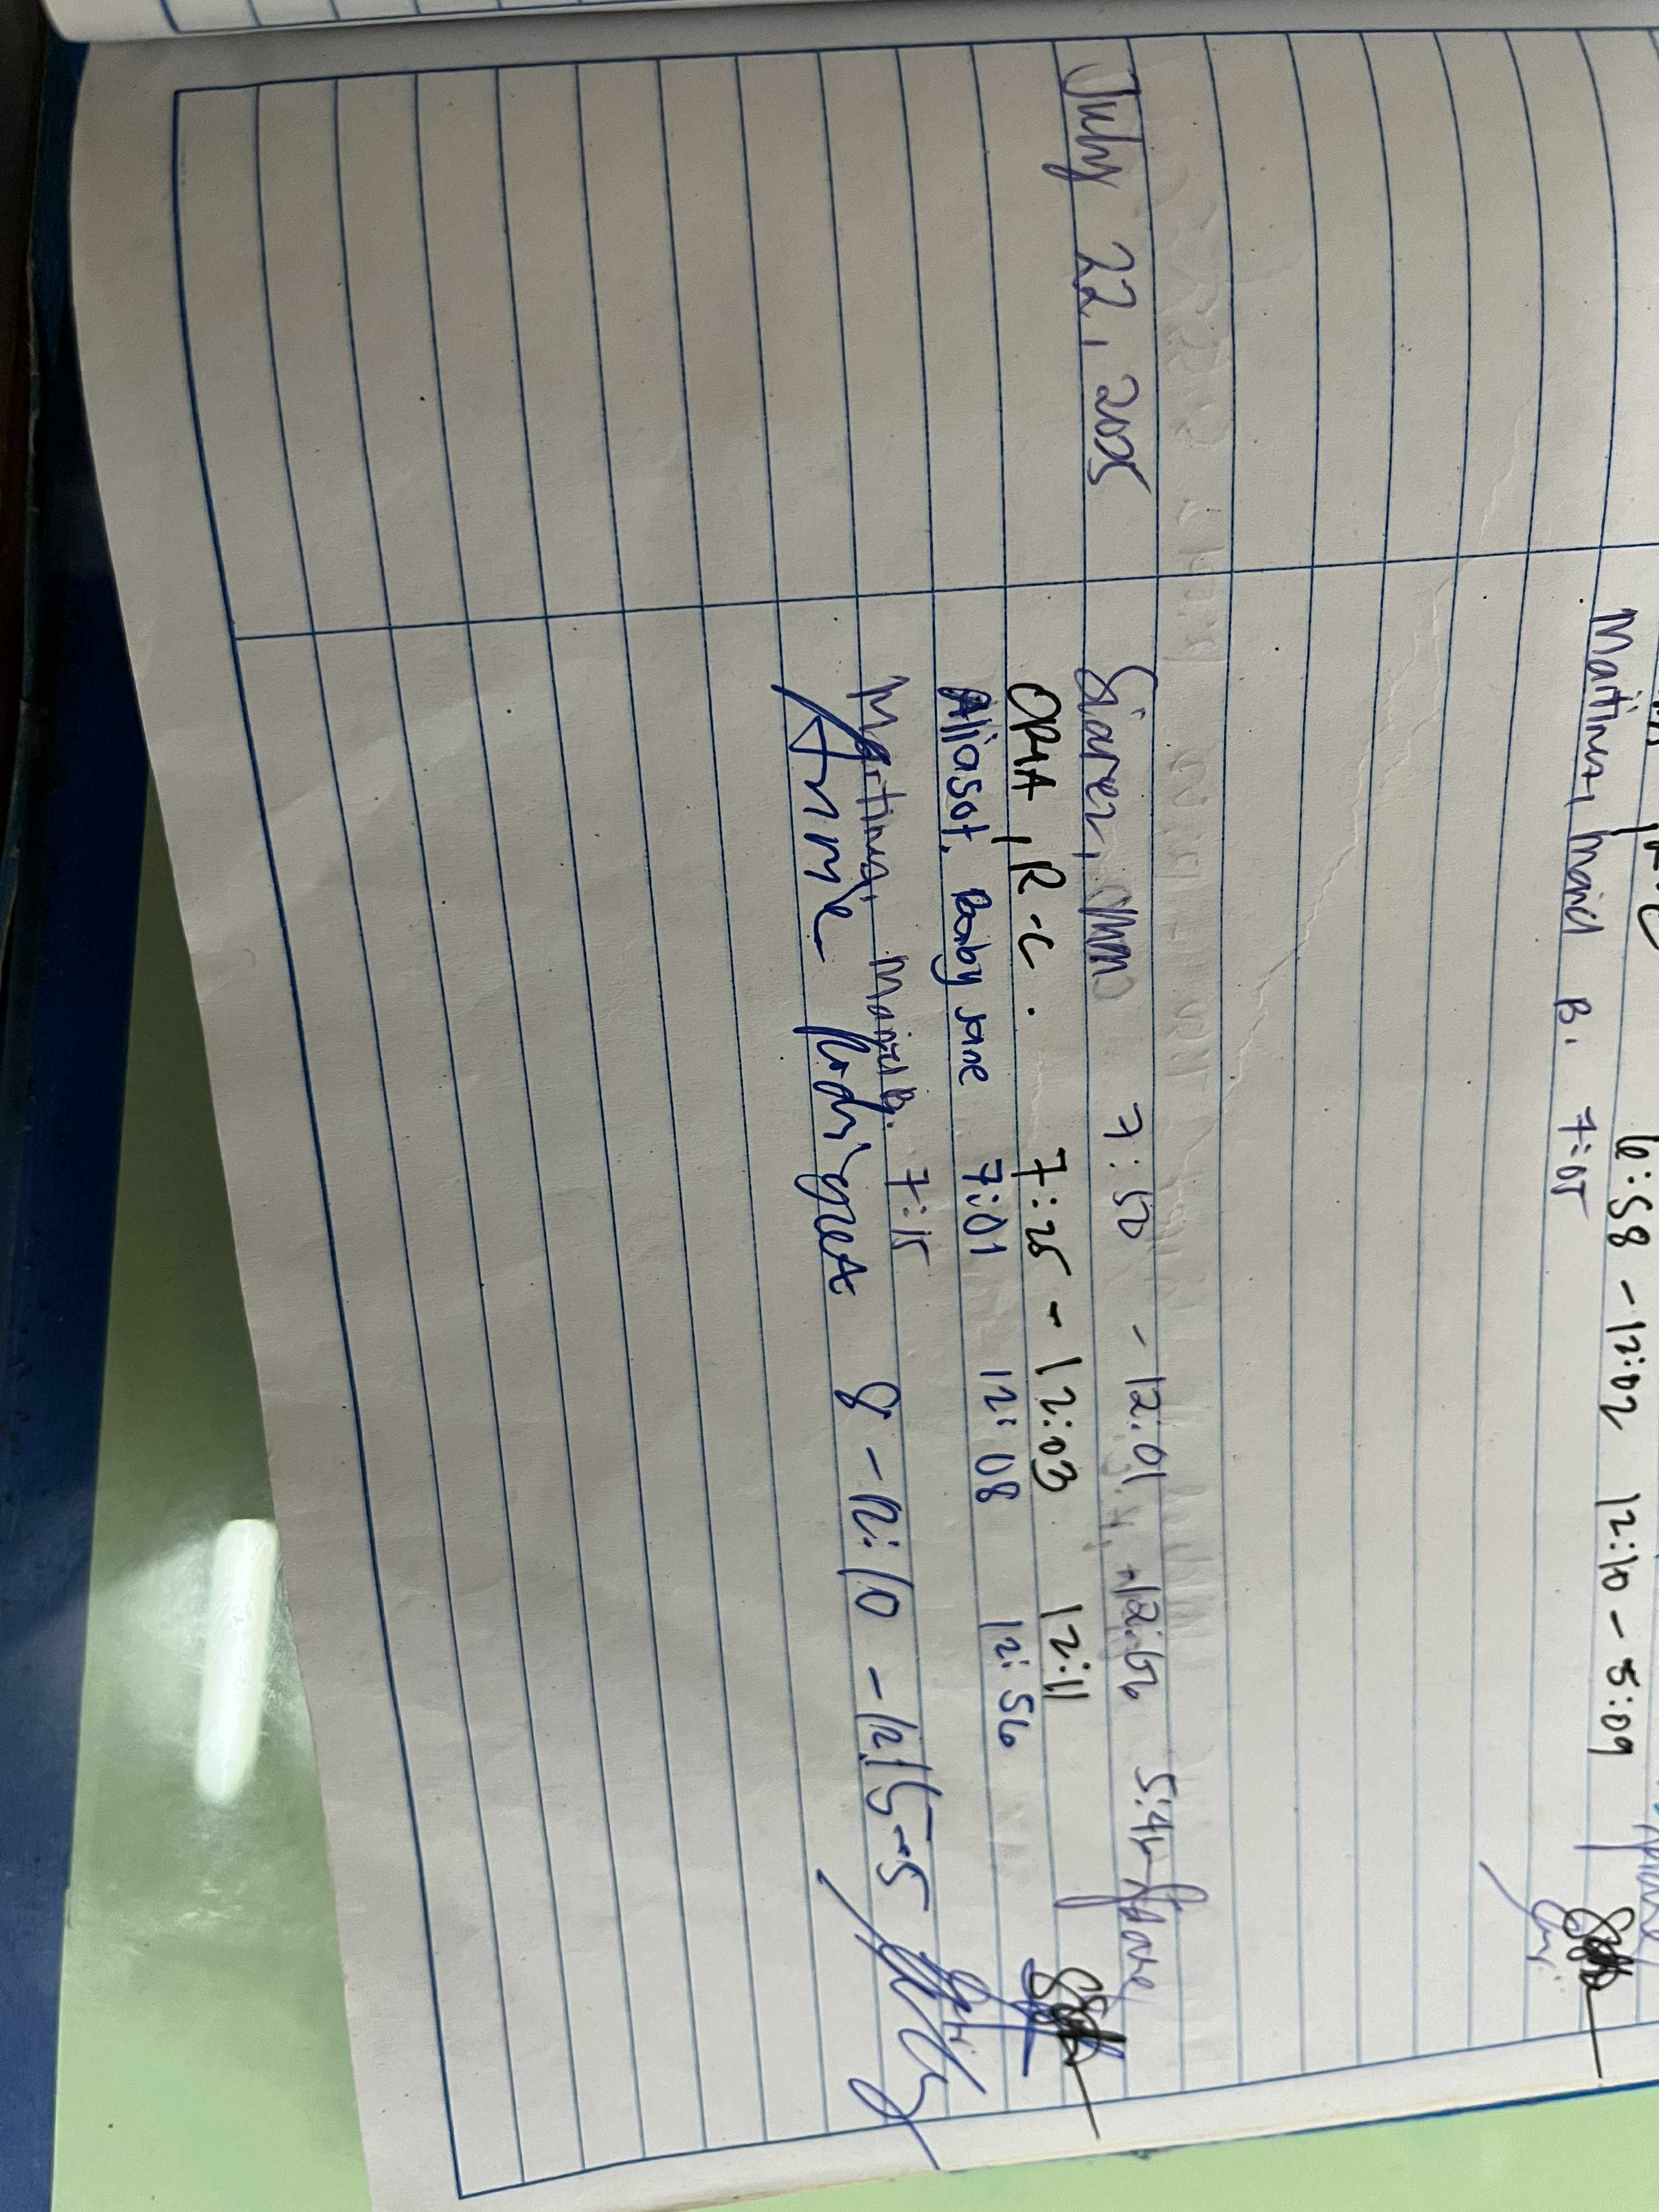 6:58 - 12:02 12:10 - 5:09
Martinez, Maricel B. 7:05
July 22, 2025 7:50 - 12:01 5:4
ORIA, R.C. 7:25 - 12:03 12:11
Aliasot, Baby Jane 7:01 12:08 12:56
Martinez, B. 7:15
Annie Rodriguez 8 - 12:10 - 12:15 - 5